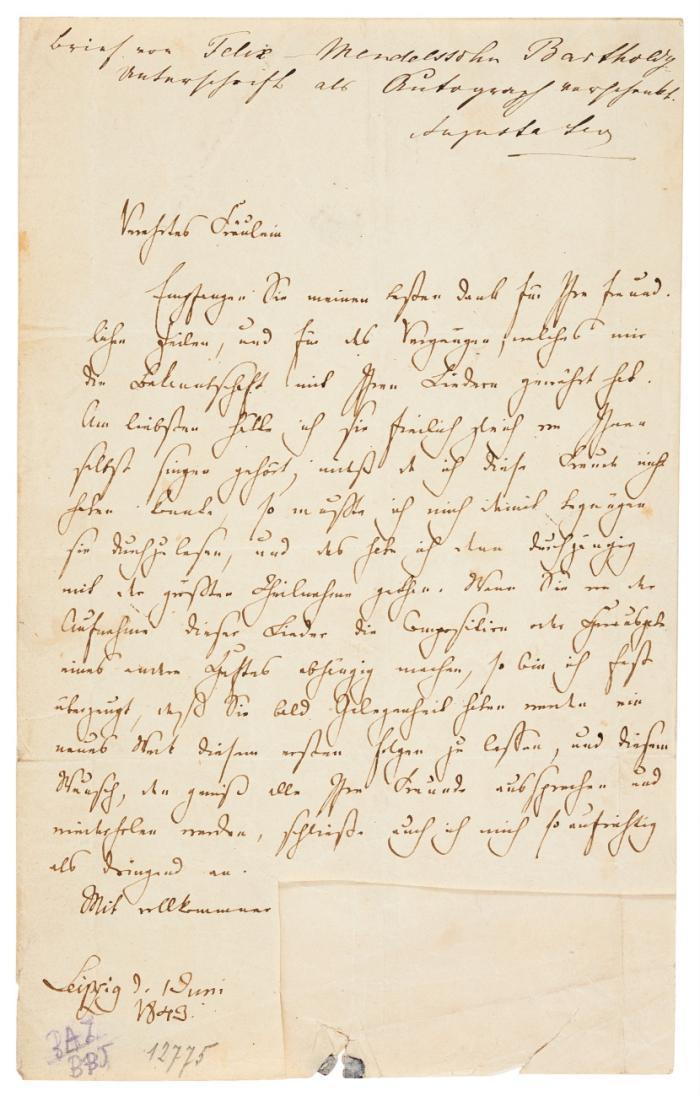 Brief von Felix Mendelssohn Bartholdy
Unterschrift als Autograph verschenkt.
Augusta
Verehrtes Fräulein
Empfangen Sie meinen besten Dank für Ihre freund-
lichen Zeilen, und für das Vergnügen, welches mir
die Bekanntschaft mit Ihren Liedern gewährt hat.
Am liebsten hätte ich sie freilich gleich von Ihnen
selbst singen gehört; da ich diese Freude nicht
haben konnte, so mußte ich mich damit begnügen
sie durchzulesen, und das habe ich denn durchgängig
mit der größten Theilnahme gethan. Wenn Sie von der
Aufnahme dieser Lieder die Composition oder Herausgabe
eines andern Heftes abhängig machen, so bin ich fest
überzeugt, daß Sie bald Gelegenheit haben werden ein
neues Werk diesem ersten folgen zu lassen, und diesem
Wunsch, den gewiß alle Ihre Freunde aussprechen und
wiederholen werden, schließe auch ich mich so aufrichtig
als dringend an.
Mit vollkommner
Leipzig d. 1 Juni
1843.
12775